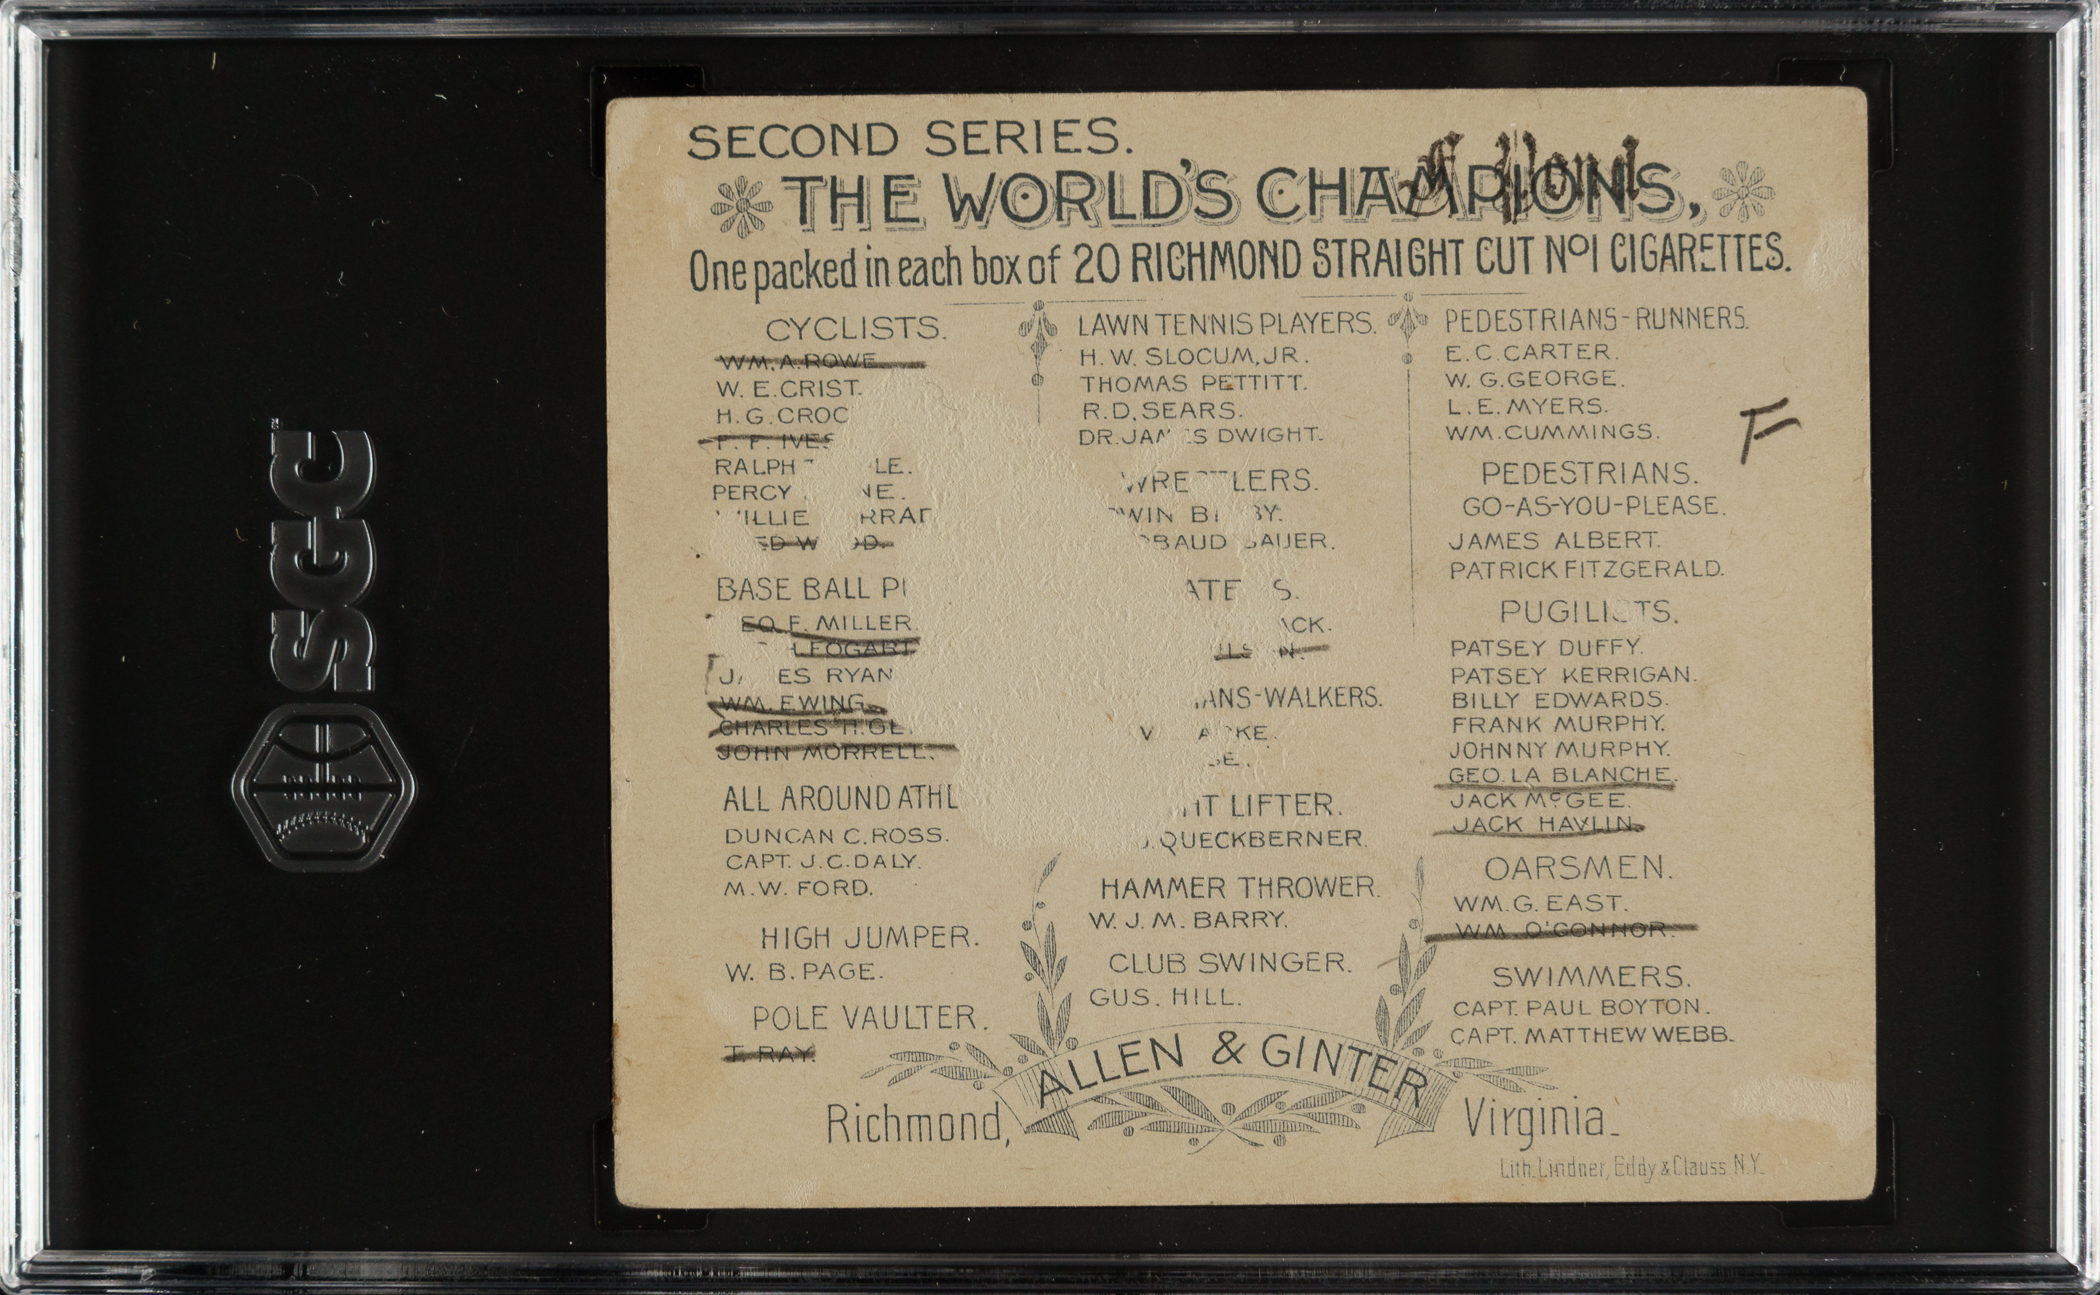 SGC
SECOND SERIES.
THE WORLD'S CHAMPIONS,
One packed in each box of 20 RICHMOND STRAIGHT CUT No1 CIGARETTES.
CYCLISTS.
WM. A. ROWE
W. E. CRIST.
H. G. CROC
F. F. IVES
RALPH LE.
PERCY NE.
WILLIE RRAD
ED W OD.
BASE BALL PL
EO. F. MILLER.
FOGART
JA ES RYAN
WM. EWING.
CHARLES H. GE
JOHN MORRELL.
ALL AROUND ATHL
DUNCAN C. ROSS.
CAPT. J. C. DALY.
M. W. FORD.
HIGH JUMPER.
W. B. PAGE.
POLE VAULTER.
T. RAY.
LAWN TENNIS PLAYERS.
H. W. SLOCUM, JR.
THOMAS PETTITT.
R. D. SEARS.
DR. JAMES DWIGHT.
WRESTLERS.
DWIN BI BY.
OBAUD BAUER.
ATE S.
ACK.
ILS N.
IANS-WALKERS.
SE.
HT LIFTER.
QUECKBERNER.
HAMMER THROWER.
W. J. M. BARRY.
CLUB SWINGER.
GUS. HILL.
PEDESTRIANS-RUNNERS.
E. C. CARTER.
W. G. GEORGE.
L. E. MYERS.
WM. CUMMINGS.
F
PEDESTRIANS.
GO-AS-YOU-PLEASE.
JAMES ALBERT.
PATRICK FITZGERALD.
PUGILISTS.
PATSEY DUFFY.
PATSEY KERRIGAN.
BILLY EDWARDS.
FRANK MURPHY.
JOHNNY MURPHY.
GEO. LA BLANCHE.
JACK McGEE.
JACK HAVLIN.
OARSMEN.
WM. G. EAST.
WM. O'CONNOR.
SWIMMERS.
CAPT. PAUL BOYTON.
CAPT. MATTHEW WEBB.
ALLEN & GINTER
Richmond, Virginia.
Lith. Lindner, Eddy & Clauss. N.Y.